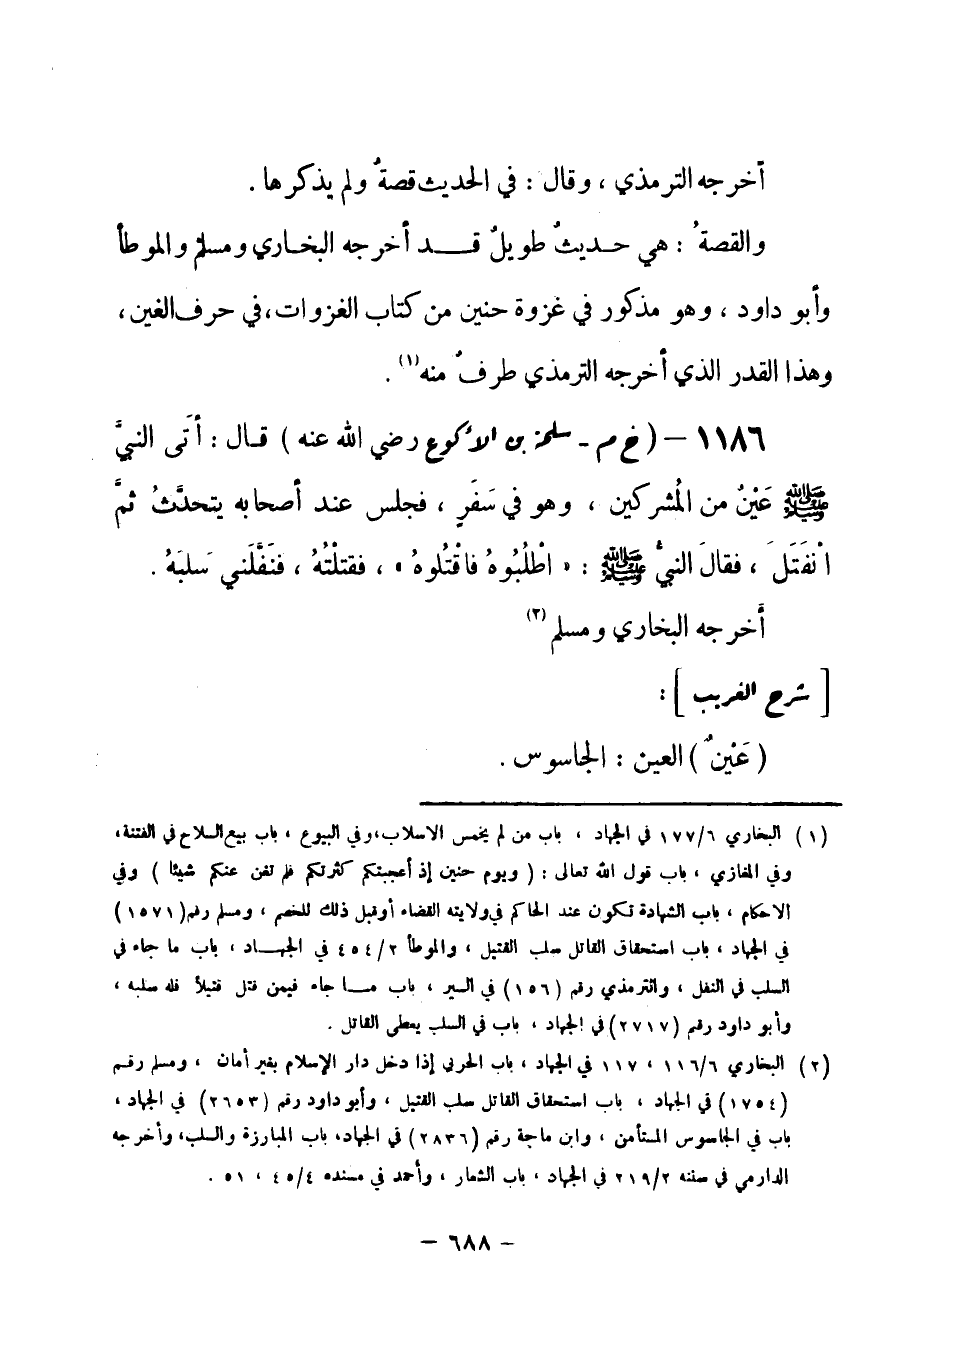 أخرجه الترمذي ، وقال : في الحديث قصةٌ ولم يذكرها .
والقصةُ : هي حديثٌ طويلٌ قد أخرجه البخاري ومسلم والموطأ
وأبو داود ، وهو مذكور في غزوة حنين من كتاب الغزوات،في حرف الغين ،
وهذا القدر الذي أخرجه الترمذي طرفٌ منه (١) .
١١٨٦ – ( خ م - سلمة بن الأكوع رضي الله عنه ) قال : أَتى النبيَّ
ﷺ عَيْنٌ من المُشركين ، وهو في سَفَرٍ ، فجلس عند أصحابه يتحدَّثُ ثمَّ
انْفَتَلَ ، فقالَ النبيُّ ﷺ : « اطْلُبُوهُ فاقْتُلوهُ » ، فقتلْتُهُ ، فنَفَّلَني سَلبَهُ .
أخرجه البخاري ومسلم (٢)
[ شرح الغريب ] :
( عَيْنٌ ) العين : الجاسوس .
(١) البخاري ١٧٧/٦ في الجهاد ، باب من لم يخمس الاسلاب ،وفي البيوع ، باب بيع السلاح في الفتنة،
وفي المغازي ، باب قول الله تعالى : ( ويوم حنين إذ أعجبتكم كثرتكم فلم تغن عنكم شيئا ) وفي
الاحكام ، باب الشهادة تكون عند الحاكم في ولايته القضاء أو قبل ذلك للخصم ، ومسلم رقم (١٥٧١)
في الجهاد ، باب استحقاق القاتل سلب القتيل ، والموطأ ٤٥٤/٢ في الجهاد ، باب ما جاء في
السلب في النفل ، والترمذي رقم (١٥٦) في السير ، باب ما جاء فيمن قتل قتيلاً فله سلبه ،
وأبو داود رقم (٢٧١٧) في الجهاد ، باب في السلب يعطى القاتل .
(٢) البخاري ١١٦/٦ ، ١١٧ في الجهاد ، باب الحربي إذا دخل دار الإسلام بغير أمان ، ومسلم رقم
(١٧٥٤) في الجهاد ، باب استحقاق القاتل سلب القتيل ، وأبو داود رقم (٢٦٥٣) في الجهاد ،
باب في الجاسوس المستأمن ، وابن ماجة رقم (٢٨٣٦) في الجهاد، باب المبارزة والسلب، وأخرجه
الدارمي في سننه ٢١٩/٢ في الجهاد ، باب الشعار ، وأحمد في مسنده ٤٥/٤ ، ٥١ .
– ٦٨٨ –